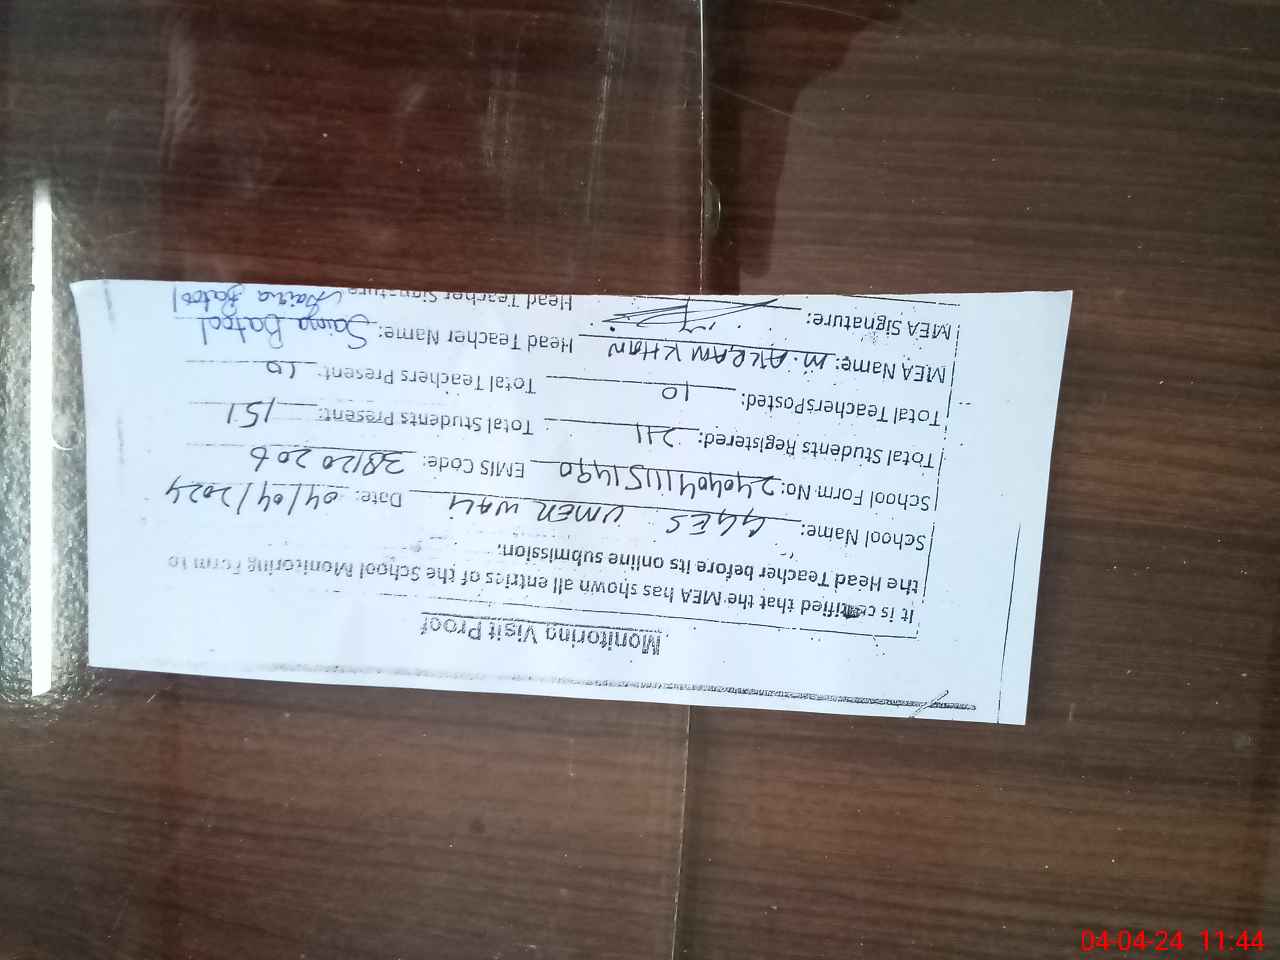 Monitoring Visit Proof
It is certified that the MEA has shown all entries of the School Monitoring Form to
the Head Teacher before its online submission.
School Name: GGES UMER WALI Date: 04/04/2024
School Form No: 24040411151490 EMIS Code: 38120206
Total Students Registered: 211 Total Students Present: 151
Total Teachers Posted: 10 Total Teachers Present: 10
MEA Name: M. AKRAM KHAN Head Teacher Name: Saima Batool
MEA Signature: Head Teacher Signature Saima Batool
04-04-24 11:44